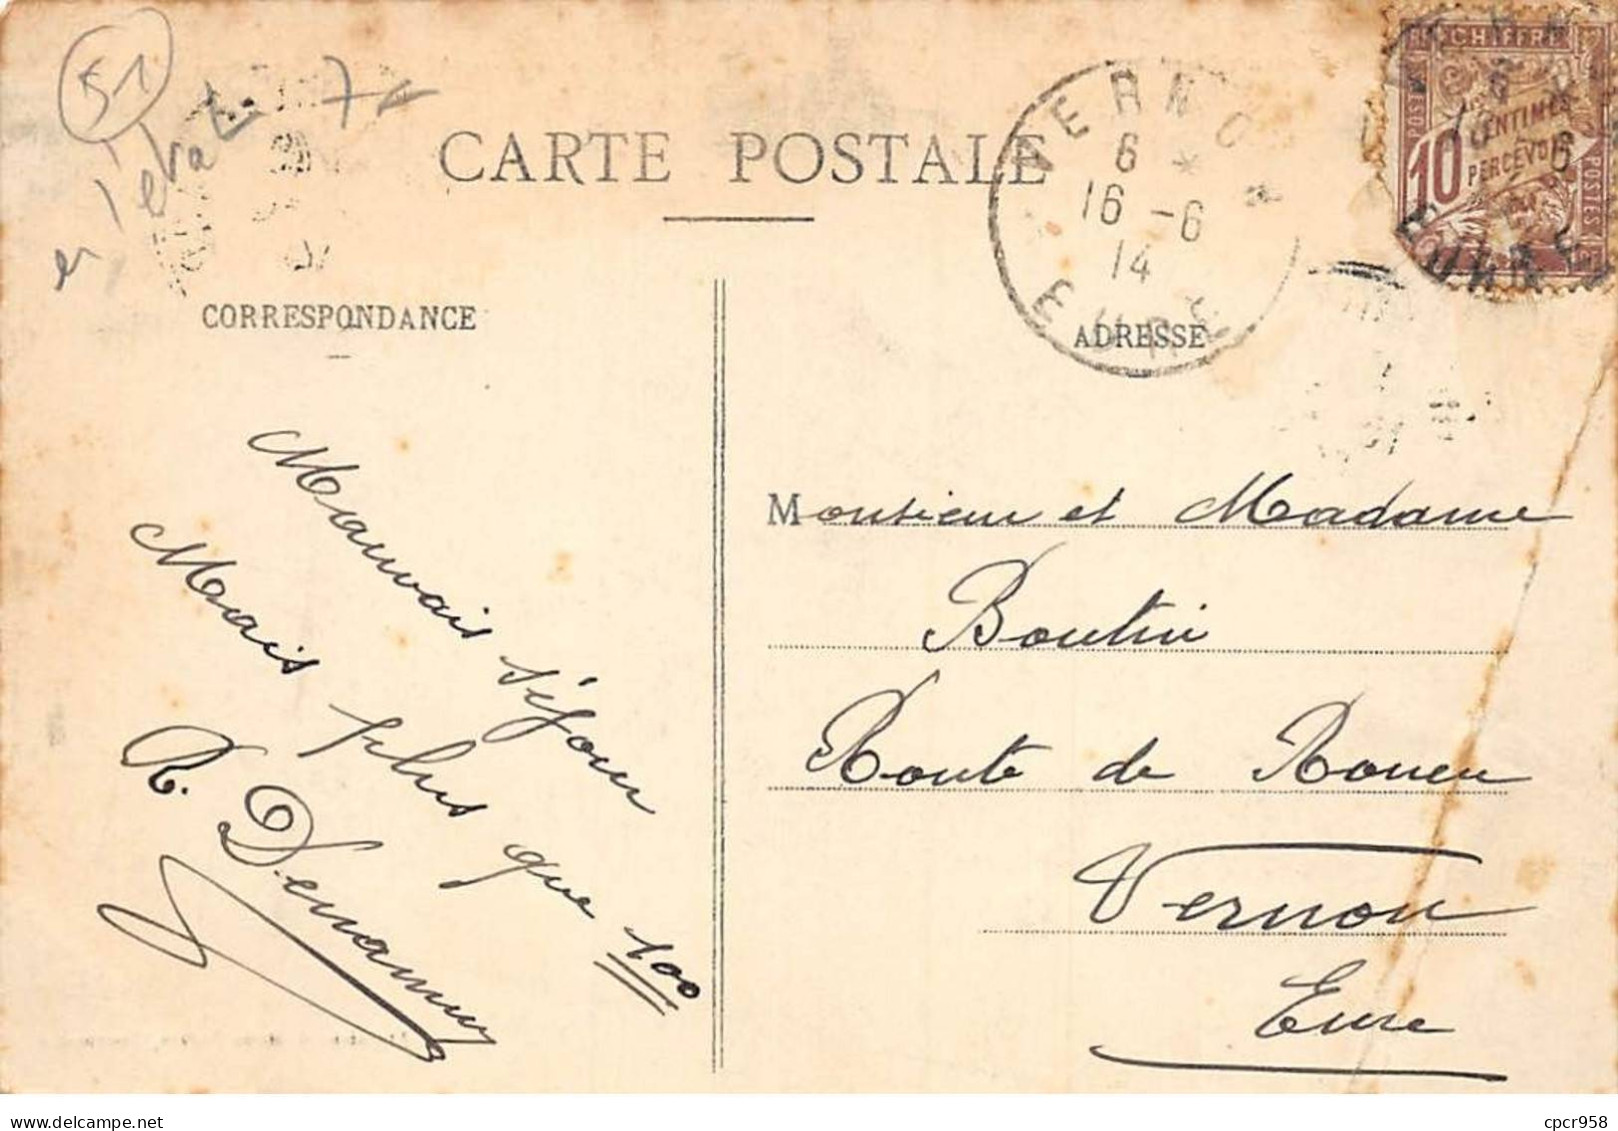 51
en l'état
CARTE POSTALE
CORRESPONDANCE
ADRESSE
VERNON
6 *
16 - 6
14
EURE
CHIFFRE
10 CENTIMES
À PERCEVOIR
POSTES
EURE
Mauvais séjour
Mais plus que 100
R. Demamuy
Monsieur et Madame
Boutin
Route de Rouen
Vernon
Eure
cpcr958